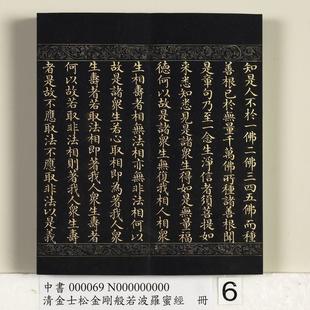 知是人不於一佛二佛三四五佛而種
善根已於無量千萬佛所種諸善根聞
是章句乃至一念生淨信者須菩提如
來悉知悉見是諸眾生得如是無量福
德何以故是諸眾生無復我相人相眾
生相壽者相無法相亦無非法相何以
故是諸眾生若心取相即為著我人眾
生壽者若取法相即著我人眾生壽者
何以故若取非法相則著我人眾生壽
者是故不應取法不應取非法以是義
中書 000069 N000000000
清金士松金剛般若波羅蜜經 冊 6